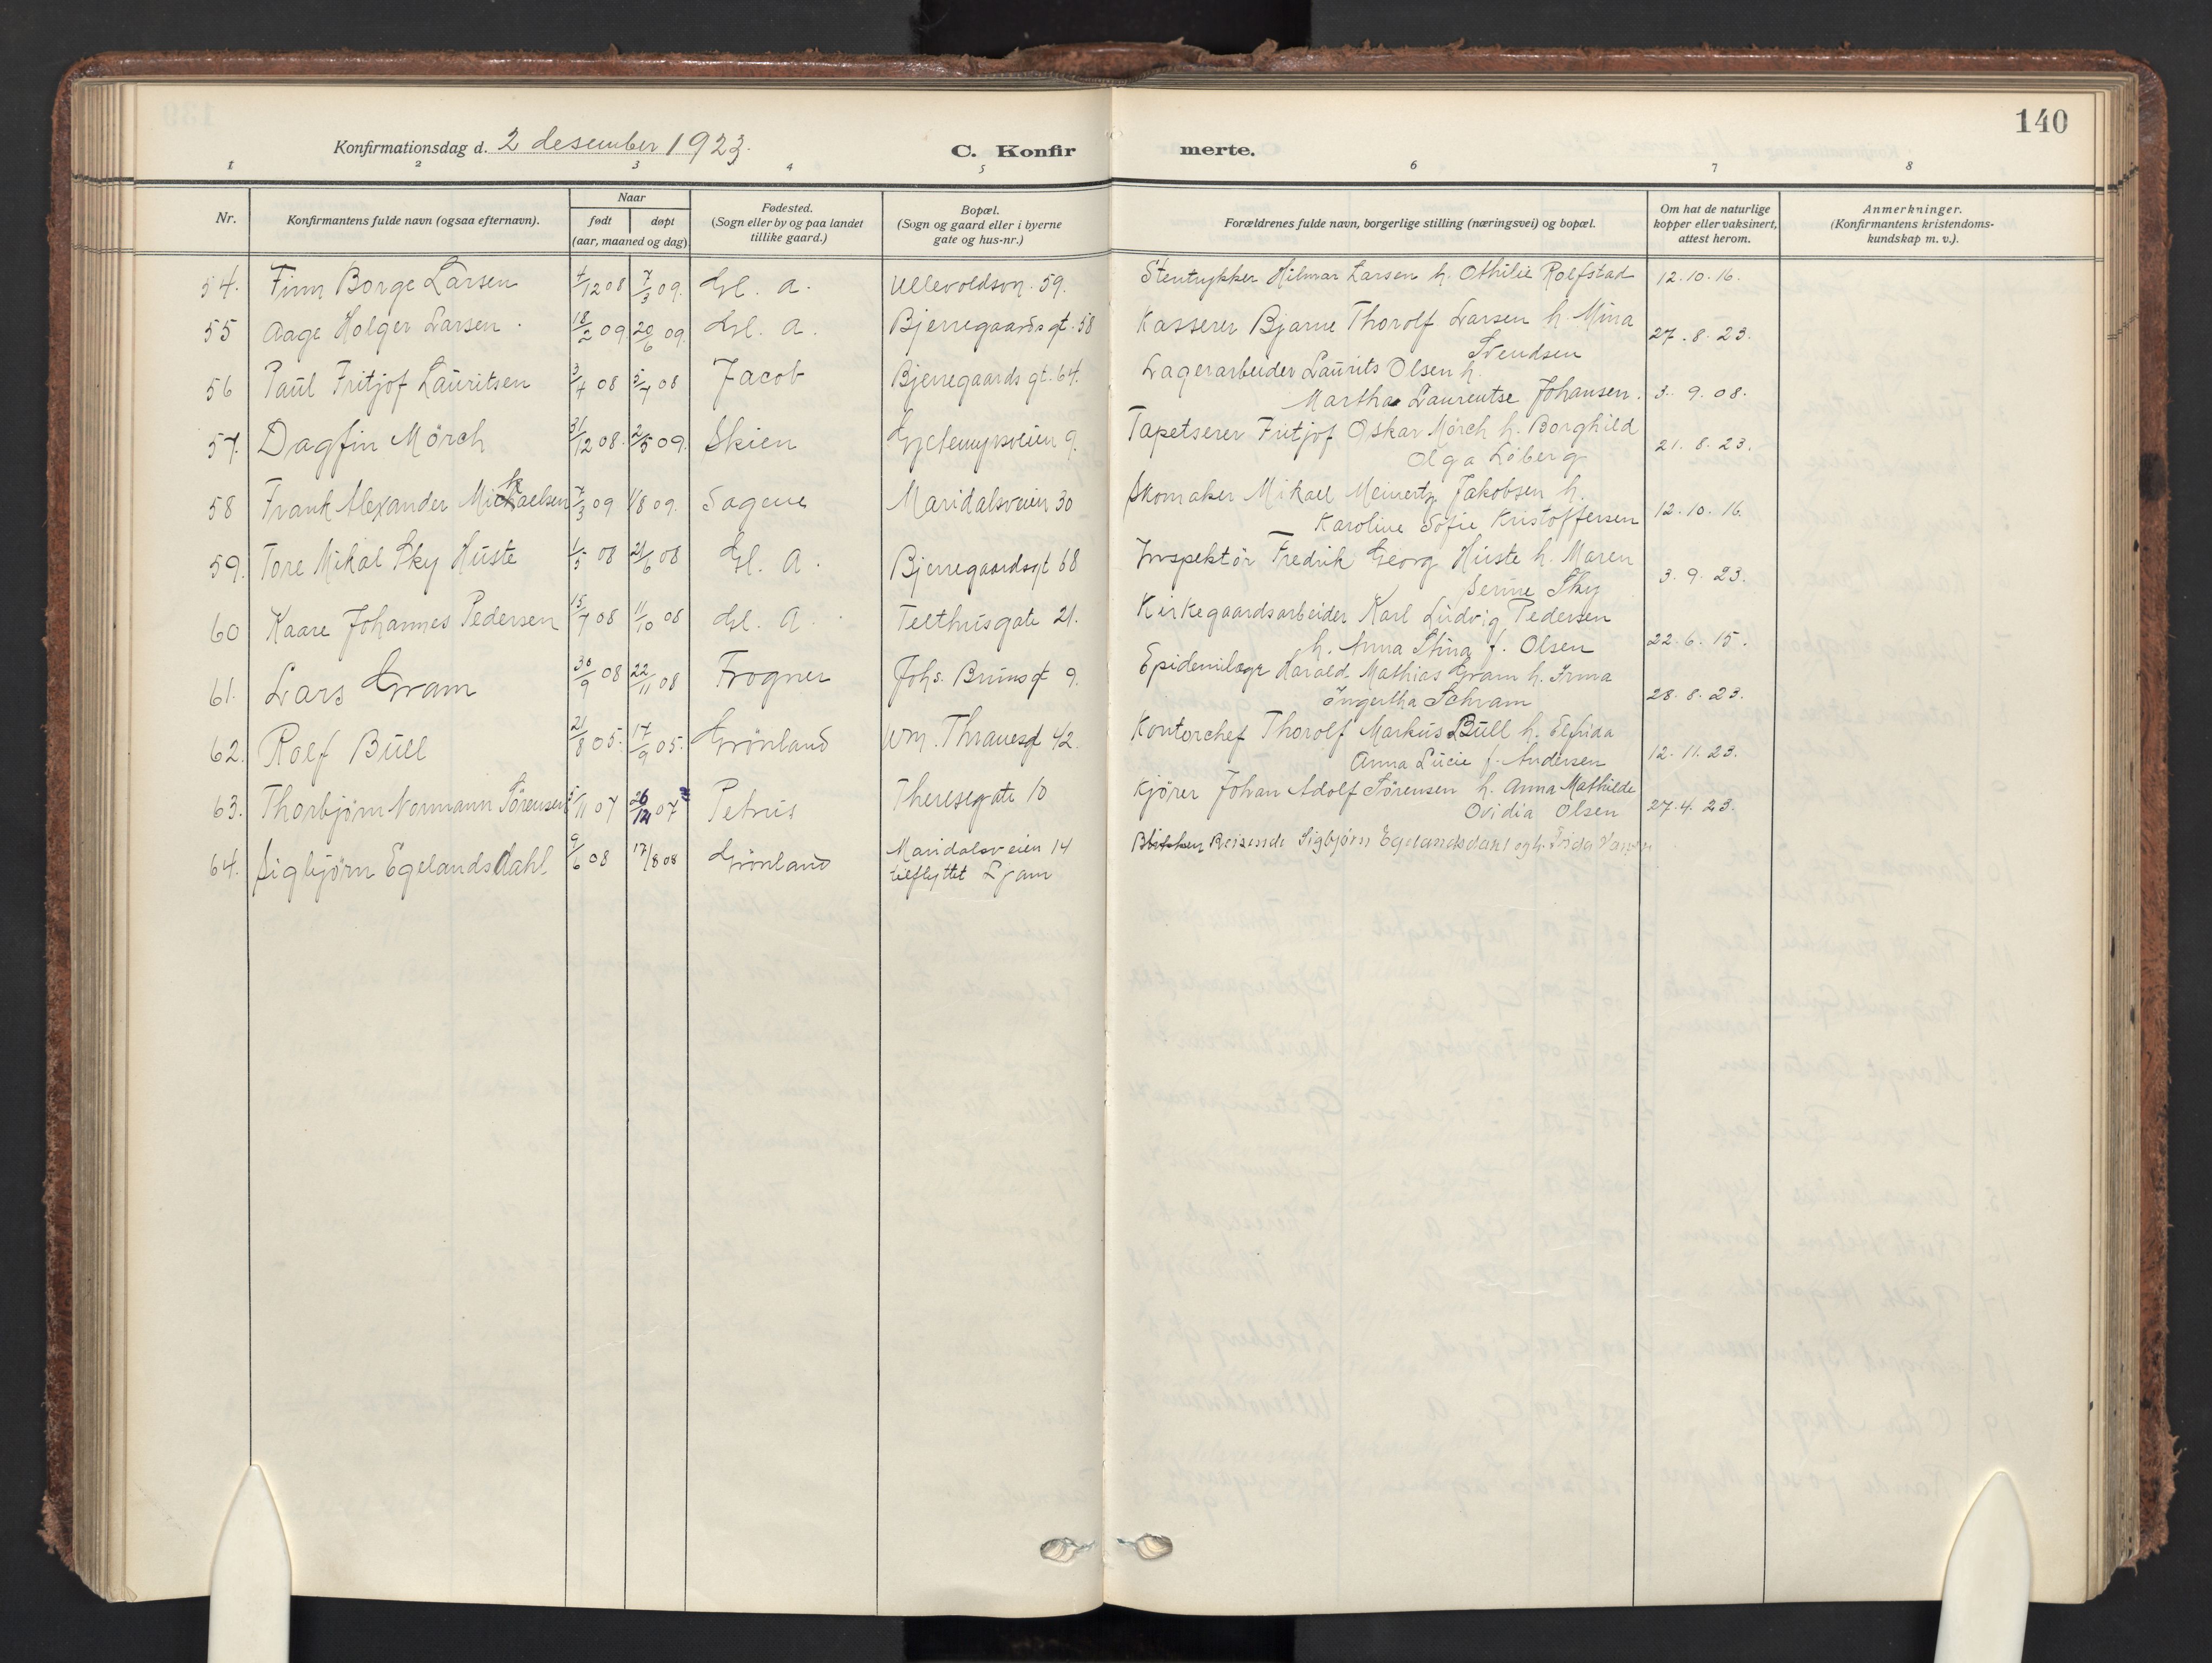 140
Konfirmationsdag d. 2 desember 1923.
C. Konfirmerte.
1 2 3 4 5 6 7 8
Nr.
Konfirmantens fulde navn (ogsaa efternavn).
Naar
født
døpt
(aar, maaned og dag)
Fødested.
(Sogn eller by og paa landet
tillike gaard.)
Bopæl.
(Sogn og gaard eller i byerne
gate og hus-nr.)
Forældrenes fulde navn, borgerlige stilling (næringsvei) og bopæl.
Om hat de naturlige
kopper eller vaksinert,
attest herom.
Anmerkninger.
(Konfirmantens kristendoms-
kundskap m. v.).
54. Finn Borge Larsen /12 08 7/3 09. Gl. A. Ullevoldsvn. 59. Stentrykker Hilmar Larsen h. Othilie Rolfstad 12.10.16.
55 Aage Holger Larsen. 18/2 09 20/6 09. Gl. A. Bjerregaards gt. 58 Kasserer Bjarne Thorolf Larsen h. Mina
Svendsen 27.8.23.
56 Paul Fritjof Lauritsen 3/4 08 5/7 08 Jacob Bjerregaards gt. 64. Lagerarbeider Laurits Olsen h.
Martha Laurentse Johansen. 3.9.08.
57. Dagfin Mörch 31/12 08. 2/5 09. Skien Gjetemyrsveien 9. Tapetserer Fritjof Oskar Mörch h. Borghild
Olga Löberg 21.8.23.
58 Frank Alexander Mikaelsen 7/3 09 1/8 09. Sagene Maridalsveien 30 Skomaker Mikael Meinertz Jakobsen h.
Karoline Sofie Kristoffersen 12.10.16.
59. Tore Mikal Sky Huste 1/5 08 21/6 08 Gl. A. Bjerregaardsgt 68 Inspektör Fredrik Georg Huste h. Maren
Serine Sky 3.9.23.
60 Kaare Johannes Pedersen 15/7 08 11/10 08 Gl. A. Telthusgate 21. Kirkegaardsarbeider Karl Ludvig Pedersen
h. Anna Stina f. Olsen 22.6.15.
61. Lars Gram 30/9 08 22/11 08 Frogner Johs. Brunsgt 9. Epidemilæge Harald Mathias Gram h. Irma
Ingertha Schram 28.8.23.
62. Rolf Bull 21/8 05. 17/9 05. Grönland Wm. Thranesgt 42. Kontorchef Thorolf Markus Bull h. Elfrida
Anna Lucie f. Andersen 12.11.23.
63. Thorbjörn Normann Sörensen 5/11 07 26/12 07 Petrus Theresegate 10 Kjörer Johan Adolf Sörensen h. Anna Mathilde
Ovidia Olsen 27.4.23.
64. Sigbjörn Egelandsdahl 9/6 08 17/8 08 Grönland Maridalsveien 14
tilflyttet Ljan Reisende Sigbjörn Egelandsdahl og h. Frida